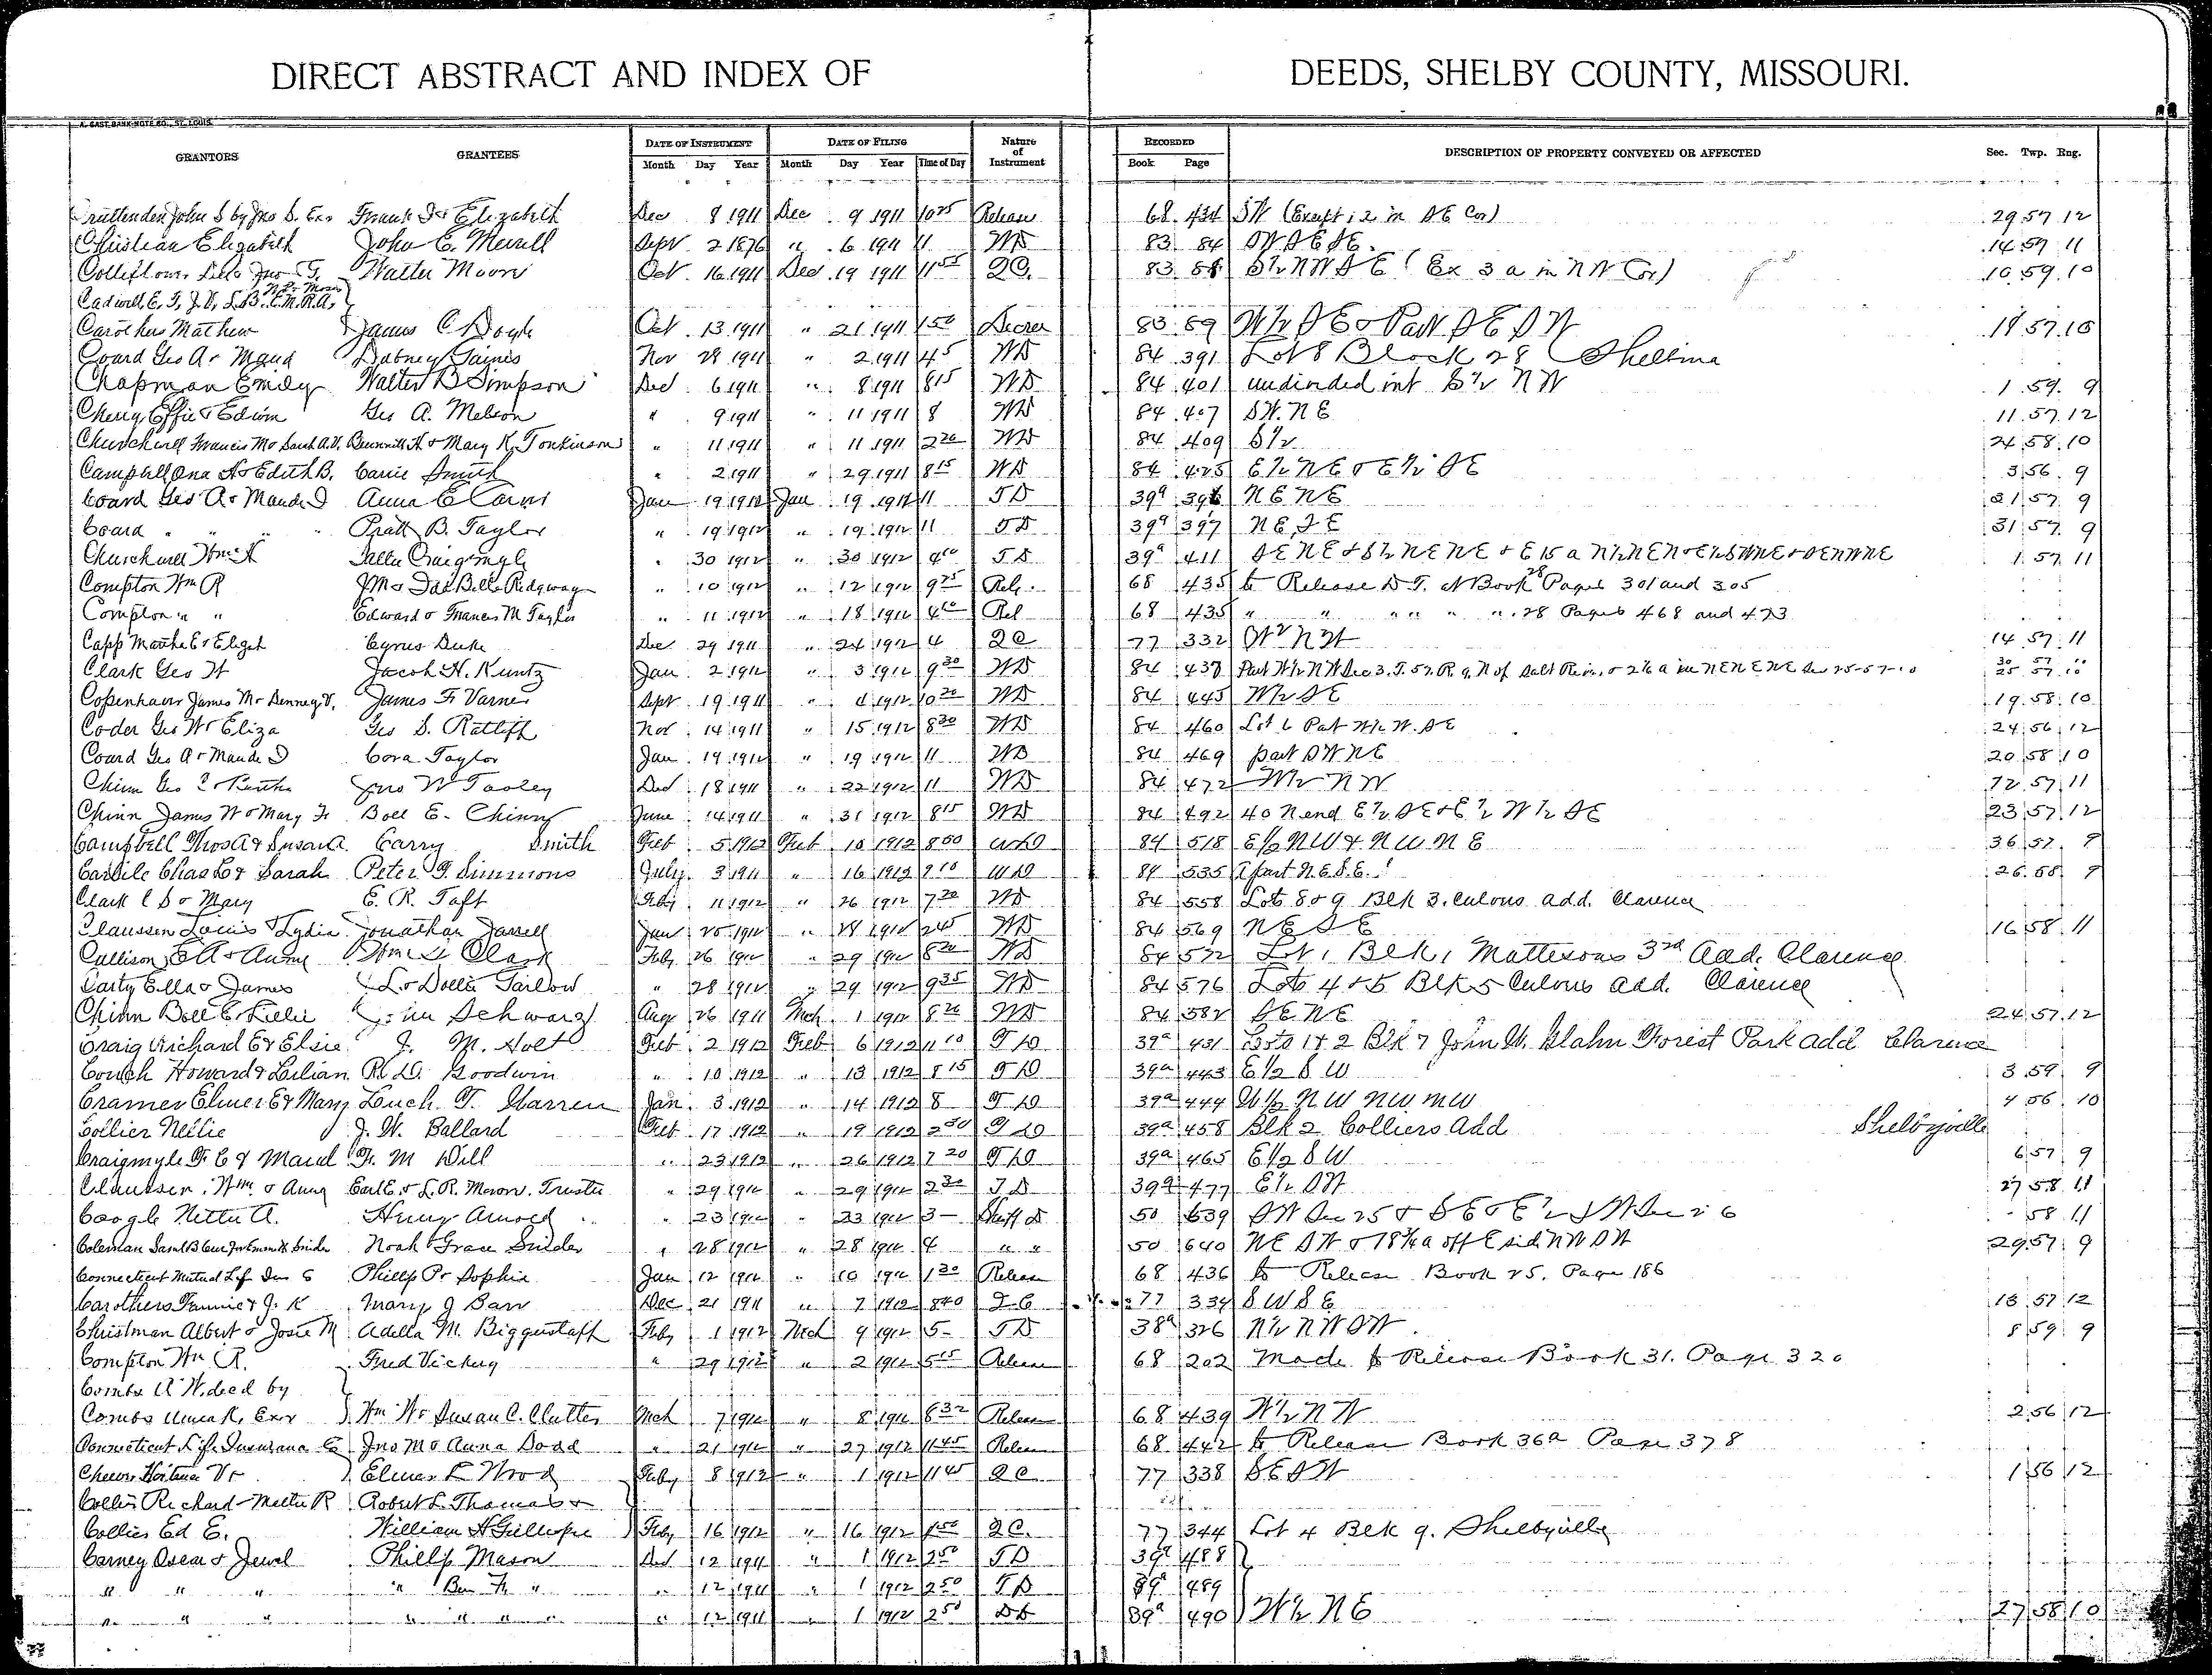 DIRECT ABSTRACT AND INDEX OF DEEDS, SHELBY COUNTY, MISSOURI.
A. GAST BANK-NOTE CO., ST. LOUIS
GRANTORS GRANTEES DATE OF INSTRUMENT DATE OF FILING Nature of Instrument RECORDED DESCRIPTION OF PROPERTY CONVEYED OR AFFECTED Sec. Twp. Rng.
Month Day Year Month Day Year Time of Day Book Page
Cruttenden John S by Jno S. Exr Frank J & Elizabeth Dec 8 1911 Dec 9 1911 10 25 Release 68 434 SW (Except 12 in SE Cor) 29 57 12
Christian Elizabeth John E. Merrill Sept 2 1876 " 6 1911 11 WD 83 84 SW SE SE. 14 59 11
Walter Moore Oct 16 1911 Dec 19 1911 11 55 QC. 83 S½ NW SE (Ex 3 a in NW Cor) 10 59 10
Cadwell, E. F, J. V, L. B. E. M. R. A,
Carothers Mathew James C Doyle Oct 13 1911 " 21 1911 1 50 Decree 83 89 W½ SE & Part SE SW 18 57 10
Coard Geo A & Maud Dabney Gaines Nov 28 1911 " 2 1911 4 5 WD 84 391 Lot 8 Block 28 Shelbina
Chapman Emily Walter B Simpson Dec 6 1911 " 8 1911 8 15 WD 84 401 undivided int S½ NW 1 59 9
Cherry Effie & Edwin Geo A. Melson " 9 1911 " 11 1911 8 WD 84 407 SW. NE 11 57 12
Churchwell Francis M & Sarah A.V. Bennett H & Mary K. Tonkinson " 11 1911 " 11 1911 2 20 WD 84 409 S½ 24 58 10
Campbell Ona H & Edith B. Carrie Smith " 2 1911 " 29 1911 8 15 WD 84 425 E½ NE & E½ SE 3 56 9
Coard Geo A & Maude D Anna E Carns Jan 19 1912 Jan 19 1912 11 TD 39a 396 NE NE 31 57 9
Coard " " " Pratt B. Taylor " 19 1912 " 19 1912 11 TD 39a 397 NE, SE 31 57 9
Churchwell Wm H Craigmyle " 30 1912 " 30 1912 4 10 TD 39a 411 SE NE & S½ NE NE & E 15 a 1 57 11
Compton Wm R JM & Ida Belle Ridgway " 10 1912 " 12 1912 9 25 Rel. 68 435 to Release D. T. Book 28 Pages 301 and 305
Compton " " Edward & Frances M Taylor " 11 1912 " 18 1912 4 Rel 68 435 " " " " " 28 Pages 468 and 473
Capp Martha E & Elijah Cyrus Duke Dec 29 1911 " 24 1912 4 QC 77 332 W½ NW 14 57 11
Clark Geo W Jacob H. Kuntz Jan 2 1912 " 3 1912 9 30 WD 84 437 Part W½ NW Sec 3. T. 57. R. 9, N of Salt River, & 2½ a in NE NE NE Sec 25-57-10
Copenhaver James M & Denney V, James F. Varner Sept 19 1911 " 4 1912 10 20 WD 84 445 W½ SE 19 58 10
Coder Geo W & Eliza Geo S. Ratliff Nov 14 1911 " 15 1912 8 30 WD 84 460 Lot 6 Part W½ W. SE 24 56 12
Coard Geo A & Maude D Cora Taylor Jan 19 1912 " 19 1912 11 WD 84 469 part SW NE 20 58 10
Chinn Geo C & Bertha Jno W Tooley Dec 18 1911 " 22 1912 11 WD 84 472 W½ NW 12 57 11
Chinn James W & Mary F. Boll E. Chinn June 14 1911 " 31 1912 8 15 WD 84 492 40 N end E½ SE & E½ W½ SE 23 57 12
Campbell Thos A & Susan A. Carry Smith Feb 5 1912 Feb 10 1912 8 00 WD 84 518 E½ NW & NW NE 36 57 9
Carlile Chas L & Sarah Peter G Simmons July 3 1911 " 16 1912 9 10 WD 84 535 A part N.E.S.E. 26 58 9
Clark C S & Mary E. R. Taft Feby 11 1912 " 26 1912 7 20 WD 84 558 Lots 8 & 9 Blk 3. Culvers add. Clarence
Claussen Louis & Lydia Jonathan Jarrell Jan 25 1912 " 28 1912 2 45 WD 84 569 NE SE 16 58 11
Cullison E A & Anna Clark Feby 26 1912 " 29 1912 8 20 WD 84 572 Lot 1 Blk 1 Mattesons 3rd Add. Clarence
Carty Ella & James L & Dollie Tarlow " 28 1912 " 29 1912 9 35 WD 84 576 Lots 4 & 5 Blk 5 Culvers add. Clarence
Chinn Boll E & Lillie Schwarz Aug 26 1911 Mch 1 1912 8 20 WD 84 582 SE NE 24 57 12
Craig Richard E & Elsie J. M. Holt Feb 2 1912 Feb 6 1912 11 10 TD 39a 431 Lots 1 & 2 Blk 7 John W. Glahn Forest Park add Clarence
Couch Howard & Lilian R. D. Goodwin " 10 1912 " 13 1912 8 15 TD 39a 443 E½ SW 3 59 9
Cramer Elmer E & Mary Leuch. T. Warren Jan 3 1912 " 14 1912 8 TD 39a 444 W½ NW NW NW 4 56 10
Collier Nellie J. W. Ballard Feb 17 1912 " 19 1912 2 30 TD 39a 458 Blk 2 Colliers Add Shelbyville
Craigmyle F. C & Maud F. M Will " 23 1912 " 26 1912 7 20 TD 39a 465 E½ SW 6 57 9
Claussen, Wm. & Anna Earl E. & L. R. Meron. Trustee " 29 1912 " 29 1912 2 30 TD 39a 477 E½ SW 27 58 11
Coogle Nettie A. Henry Arnold " 23 1912 " 23 1912 3 - Shff D 50 639 SW Sec 25 & SE & E½ SW Sec 26 58 11
Coleman Noah & Grace Snider " 28 1912 " 28 1912 4 " " 50 640 NE SW & 18¾ a off E side NW SW 29 57 9
Connecticut Mutual Life Ins Co Phillip P & Sophia Jan 12 1912 " 10 1912 1 30 Release 68 436 to Release Book 25. Page 186
Carothers Fannie & J. K Mary J Barr Dec 21 1911 " 7 1912 8 40 Q C 77 334 SW SE 13 57 12
Christman Albert & Josie M Adella M. Biggerstaff Feby 1 1912 Mch 9 1912 5- TD 38a 326 N½ NW SW. 8 59 9
Compton Wm R. Fred Vickery " 29 1912 " 2 1912 5 15 Release 68 202 Made to Release Book 31. Page 320
Combs A W. decd by
Combs Exr Wm W & Susan C. Clutter Mch 7 1912 " 8 1912 8 32 Release 68 439 W½ NW 2 56 12
Connecticut Life Insurance Co Jno M & Anna Dodd " 21 1912 " 27 1912 11 45 Release 68 442 to Release Book 36a Page 378
Elmer E Wood Feby 8 1912 " 1 1912 11 45 QC 77 338 SE SW 1 56 12
Collier Richard - Mettie R Robert L. Thomas &
Collier Ed E. William H Gillispie Feby 16 1912 " 16 1912 1 50 QC. 77 344 Lot 4 Blk 9. Shelbyville
Carney Oscar & Jewel Phillip Mason Dec 12 1911 " 1 1912 2 50 TD 39a 488
" " " " Ben F. " " 12 1911 " 1 1912 2 50 TD 39a 489
" " " " " " " " 12 1911 " 1 1912 2 50 39a 490 W½ NE 27 58 10